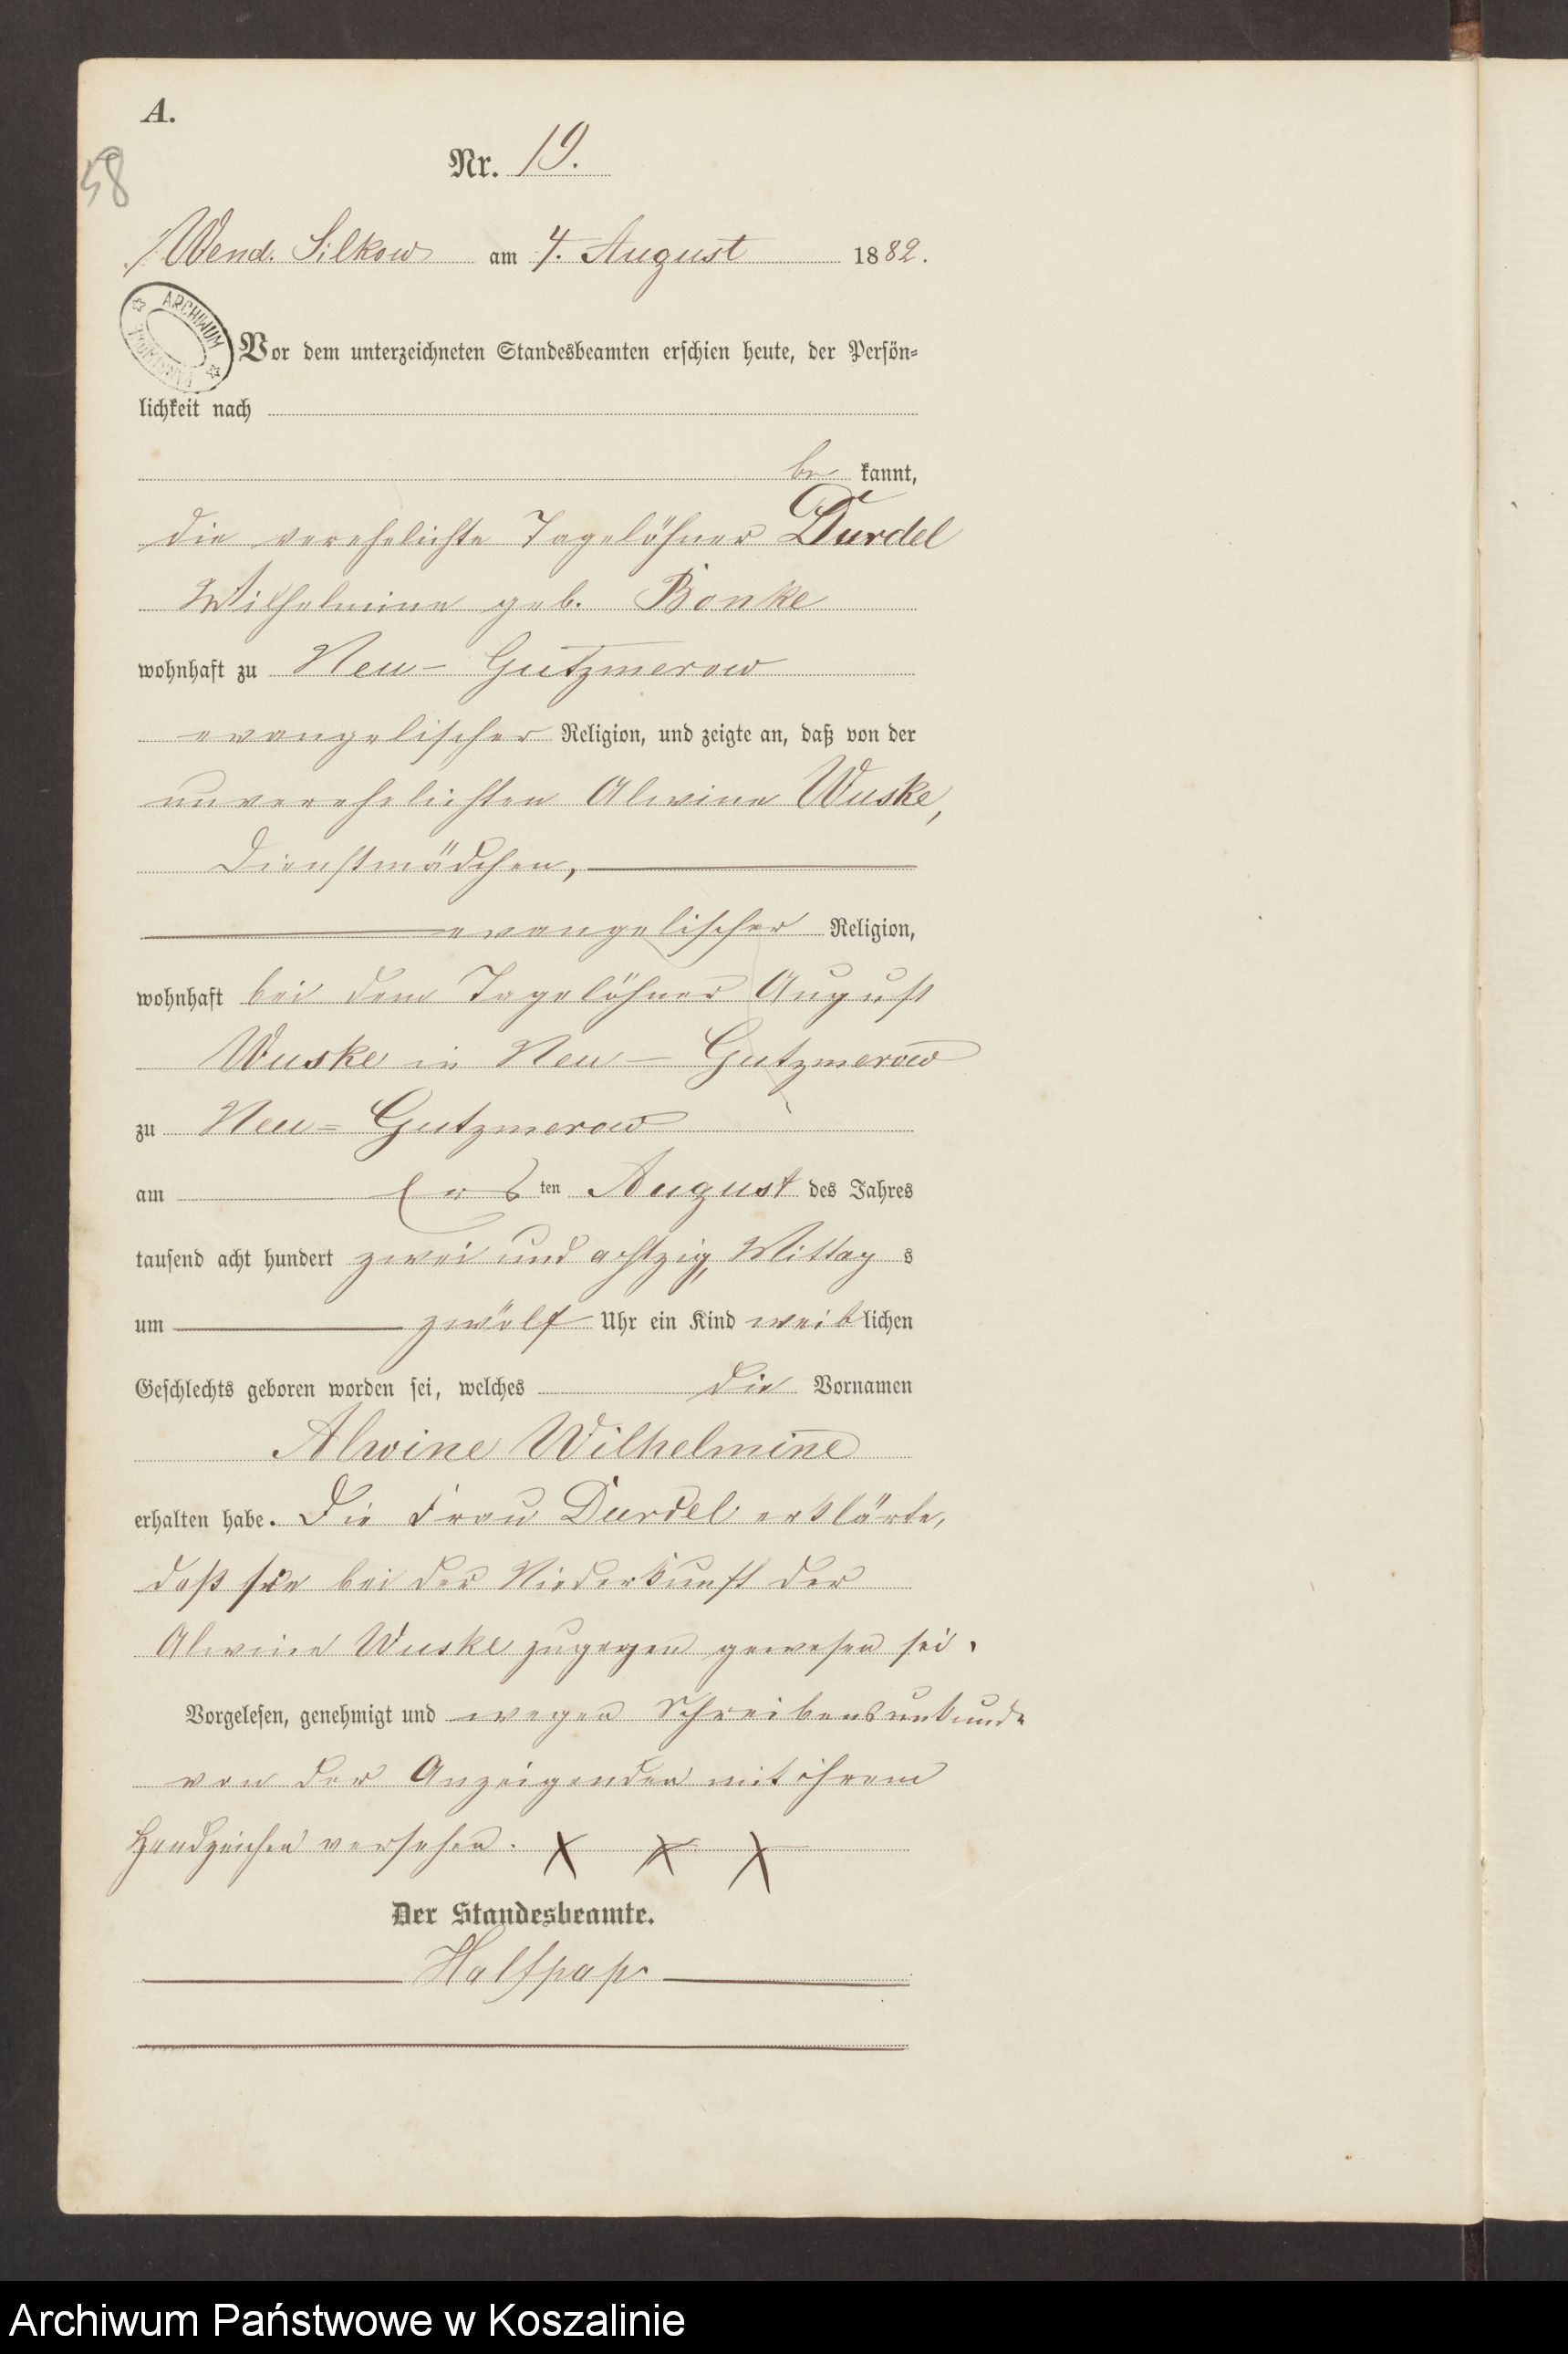 A.
58
Nr. 19.
Wend. Silkow am 4. August 1882.
ARCHIWUM
Vor dem unterzeichneten Standesbeamten erschien heute, der Persön-
lichkeit nach
be kannt,
die verehelichte Tagelöhner Durdel
Wilhelmine geb. Bonke
wohnhaft zu Neu- Gutzmerow
evangelischer Religion, und zeigte an, daß von der
unverehelichten Alwine Wuske,
Dienstmädchen,
evangelischer Religion,
wohnhaft bei dem Tagelöhner August
Wuske in Neu- Gutzmerow
zu Neu= Gutzmerow
am ersten August des Jahres
tausend acht hundert zwei und achtzig, Mittag s
um zwölf Uhr ein Kind weiblichen
Geschlechts geboren worden sei, welches die Vornamen
Alwine Wilhelmine
erhalten habe. Die Frau Durdel erklärte,
daß sie bei der Niederkunft der
Alwine Wuske zugegen gewesen sei.
Vorgelesen, genehmigt und wegen Schreibensunkunde
von der Anzeigenden mit ihrem
Handzeichen versehen. X X X
Der Standesbeamte.
Halfpap
Archiwum Państwowe w Koszalinie